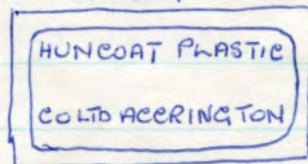 HUNCOAT PLASTIC
CO LTD ACCRINGTON